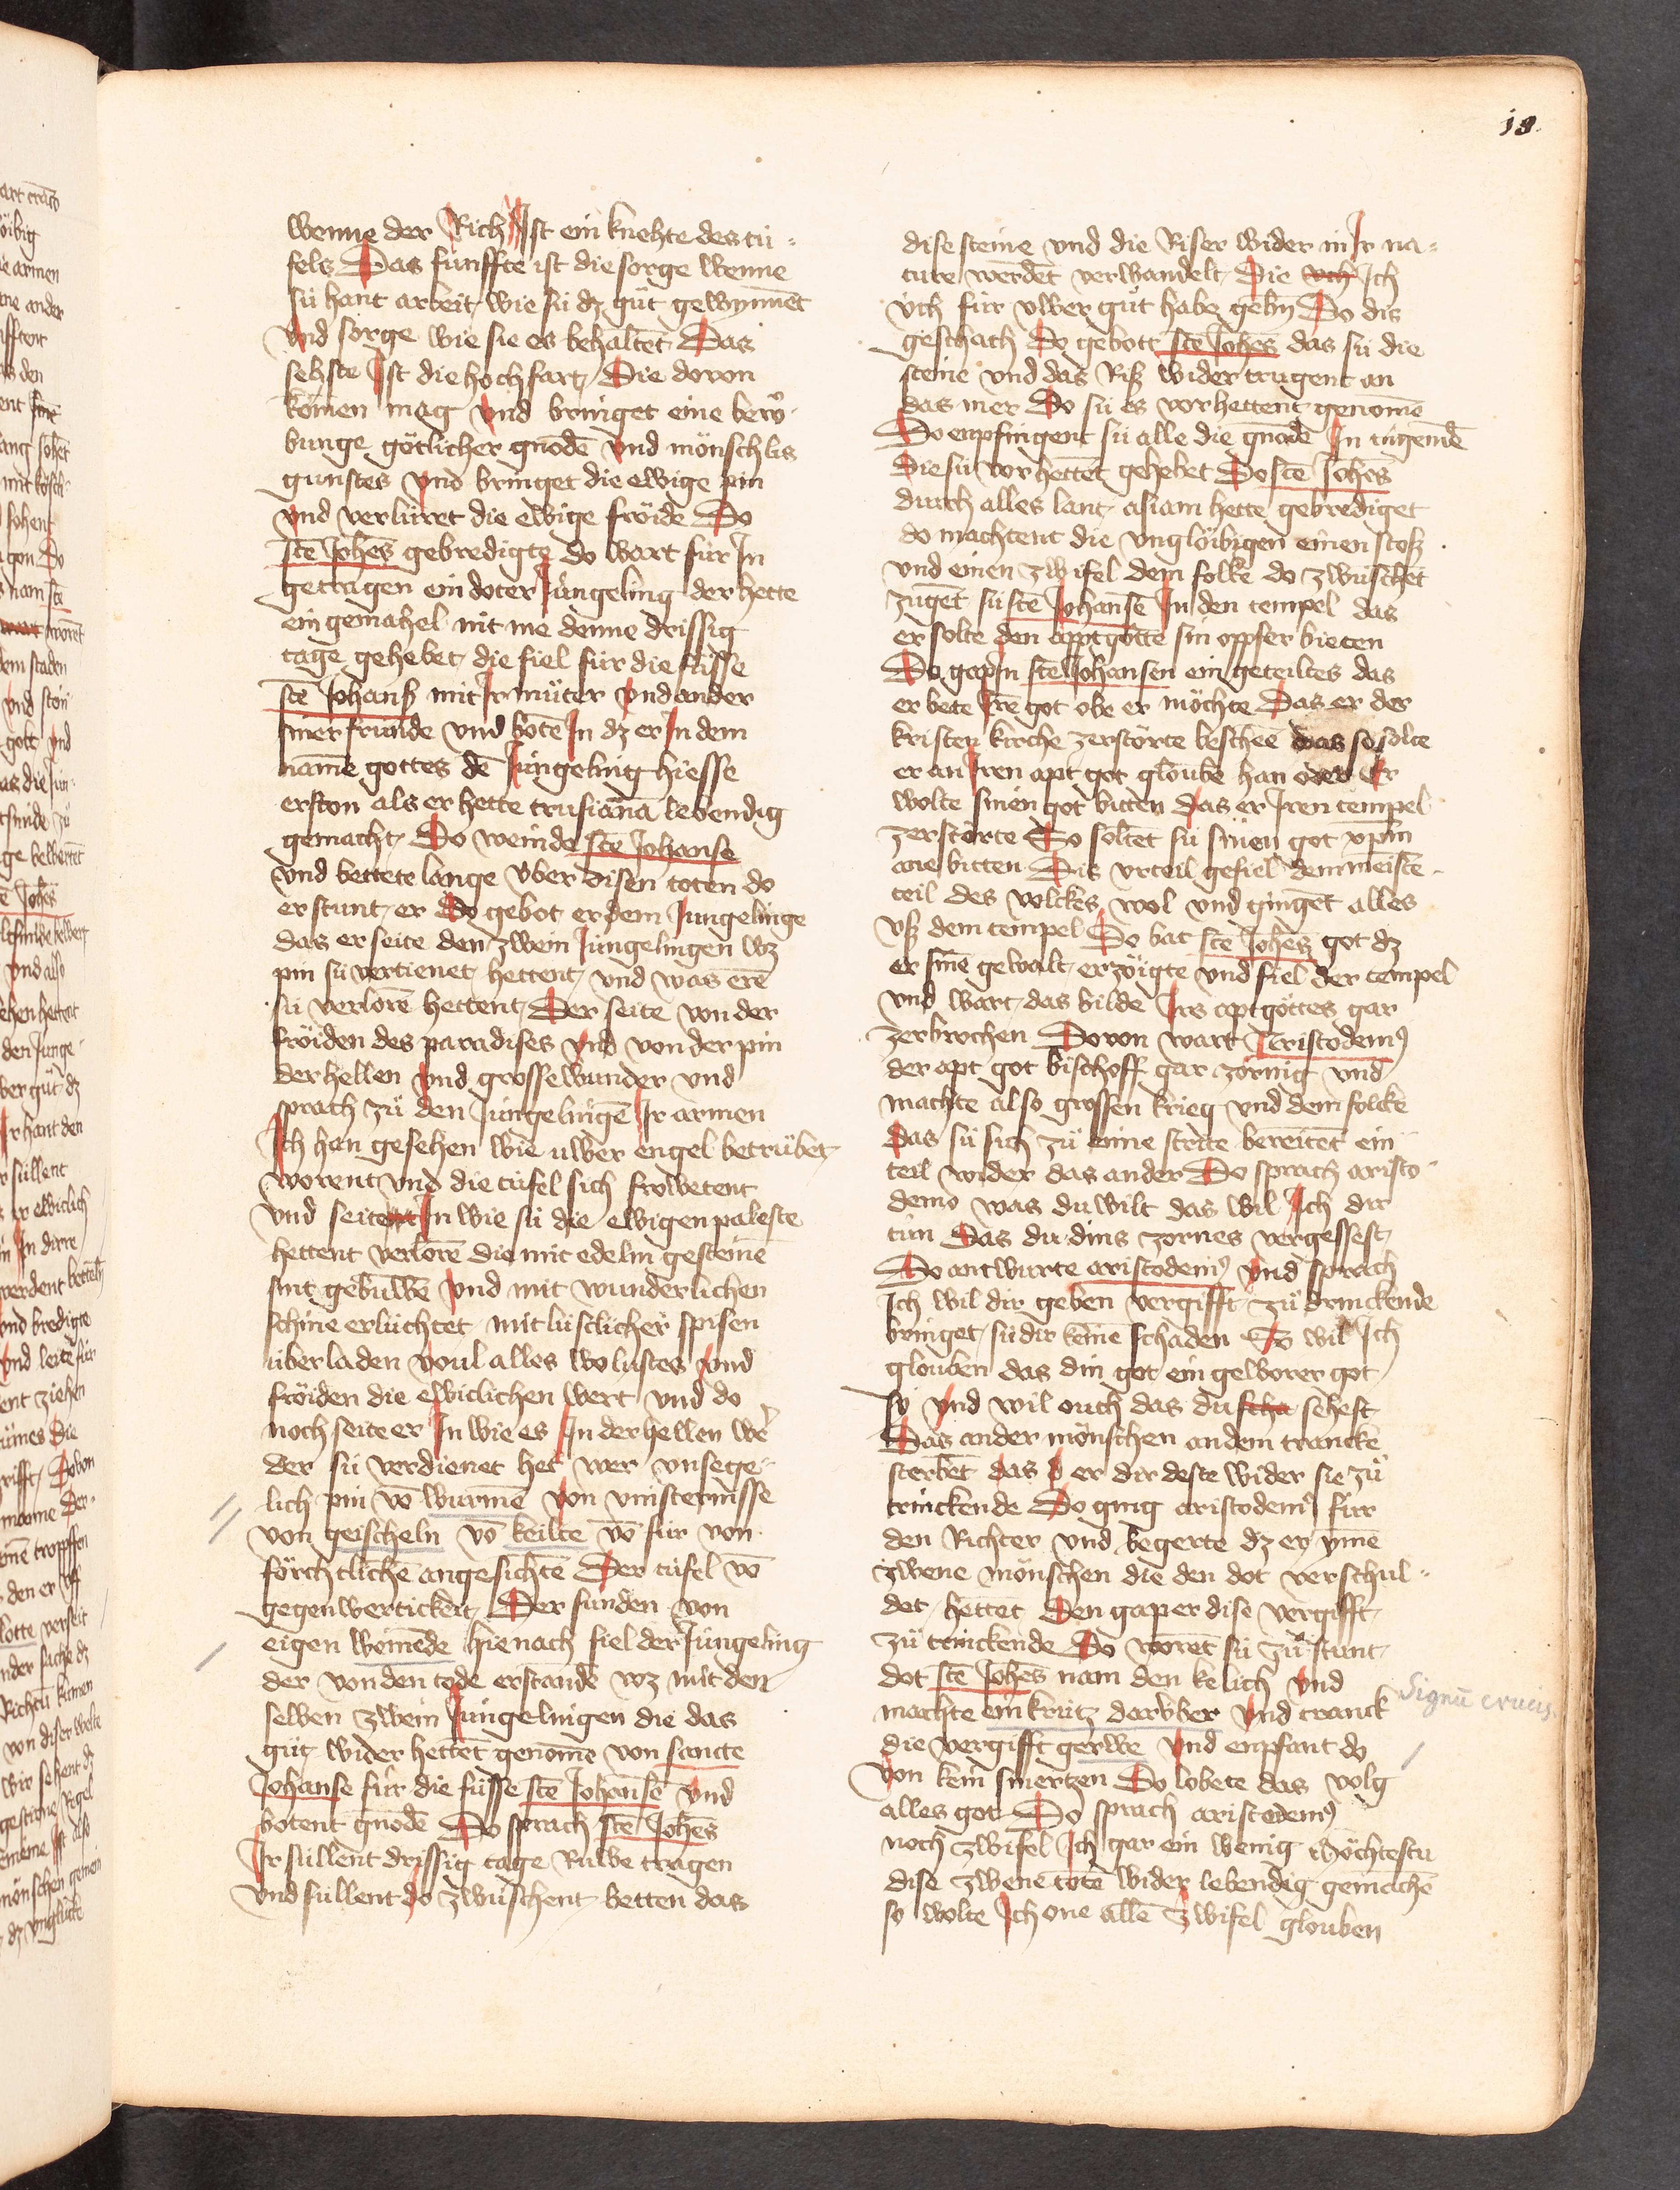 19
wenne der Rich Ist ein knehte des tü-
fels Das fünffte ist die sorge wenne
sü hant arbeit wie sü dz gůt gewynnēt
vnd sorge wie sie es behaltēt Das
sehste Ist die hochfart Die dovon
komen mag vnd bringet eine berö-
bunge götlicher gnodē vnd mönschlis
gunstes vnd bringet die ewige pin
vnd verlürret die ewige fröide Do
scē Johēs gebredigte do wart für In
getragen ein doter Jüngeling der hette
ein gemahel nit me denne drissig
tage gehebet die fiel für die füsse
scē Johans mit Ir můter vnd ander
siner fründe vnd botē In dz er In dem
name gottes dē Jüngeling hiesse
erston als er hette trusiana lebendig
gemacht Do weinde scē Johanse
vnd bettete lange vber disen toten do
er stunt er Do gebot er dem Jungelinge
das er seite den zwein Jüngelingen wz
pin sü vertienet hettent vnd was erē
sü verlorē hettent Der seite von der
fröiden des paradises vnd von der pin
der hellen vnd grosse wunder vnd
sprach zů den Jüngelingē Ir armen
Ich han gesehen wie uwer engel betrübet
worent vnd die tüfel sich frowetent
vnd seite In wie sü die ewigen paleste
hettent verlorē die mit edelm gesteinē
sint gebuwē vnd mit wunderlichen
schine erlüchtet mit lüstlicher spisen
überladen voul alles wolustes vnd
fröiden die ewiclichen wert vnd do
noch seite er In wie es In der hellen wē
der sü verdienet het wer vnsege-
lich pin vō wurmē von vinsternisse
von geischeln vō keilte vō für von
förchtlichē angesichtē Der tüfel vō
gegenwertickeit Der sunden von
eigen weinēde hienach fiel der Jüngeling
der von den tode erstandē wz mit den
selben zwein Jüngelingen die das
gůt wider hettēt genomē von sancte
Johanse für die füsse scē Johansē vnd
botent gnodē Do sprach scē Johēs
Ir süllent drissig tage Ruwe tragen
vnd süllent do zwüschent betten das
dise steine vnd die Riser wider in Ir na-
ture werdēt verwandelt Die vch Ich
üch für vwer gůt habe gebn Do dis
geschach Do gebott scē Johēs das sü die
steine vnd das Riß wider trugent an
das mer Do sü es vor hettent genomē
Do enpfingent sü alle die gnadē In tugendē
Die sü vor hettēt gehebet Do scē Johēs
durch alles lant asiam hette gebrediget
do machtent die vnglöibigen einen stoß
vnd einen zwifel dem folke do zwüschēt
zugēt sü scē Johansē In den tempel das
er solte den apptgottē sin oppfer bieten
Do gap In scē Johansen ein geteiltes das
er bete Irē got obe er möchte Das er der
kristen kirche zerstörte beschee das so solte
er an Iren apt got gloube han oder Er
wolte sinen got bitten das er Iren tempel
zerstörte So soltēt sü sinen got xpm
ane bitten Dis vrteil gefiel dem meistē
teil des volckes wol vnd gingēt alles
vß dem tempel Do bat scē Johēs got dz
er sinē gewalt erzöigte vnd fiel der tempel
vnd wart das bilde Irs aptgottes gar
zerbrochen Dovon wart Aristodem9
der apt got bischoff gar zornig vnd
machte also grossen krieg vnd dem folcke
das sü sich zů eime strite bereitēt ein
teil wider das ander Do sprach aristo-
demo was du wilt das wil Ich dir
tůn Das du dins zornes vergessest
Do antwurte aristodem9 vnd sprach
Ich wil dir geben vergifft zů drinckende
bringet sü dir keinē schaden So wil Ich
glouben das din got ein geworer got
sy vnd wil ouch das du scha sehest
Das ander mönschen an dem tranckē
sterbēt das er dir deste wider sie zů
trinckende Do ging aristodem9 für
den Richter vnd begerte dz er ymē
zwene mönschen die den dot verschul-
det hettet Den gap er dise vergifft
zů trinckende Do worēt sü zů stunt
dot scē Johēs nam den kelich vnd
machte ein krütz darüber vnd tranck
die vergifft gerwe vnd enpfant do
von kein smertzen Do lobete das volg
alles got Do sprach aristodem9
noch zwifel Ich gar ein wenig Möchtestu
dise zwene totē wider lebendig gemachē
so wolte Ich one allē zwifel glouben
Signū crucis.